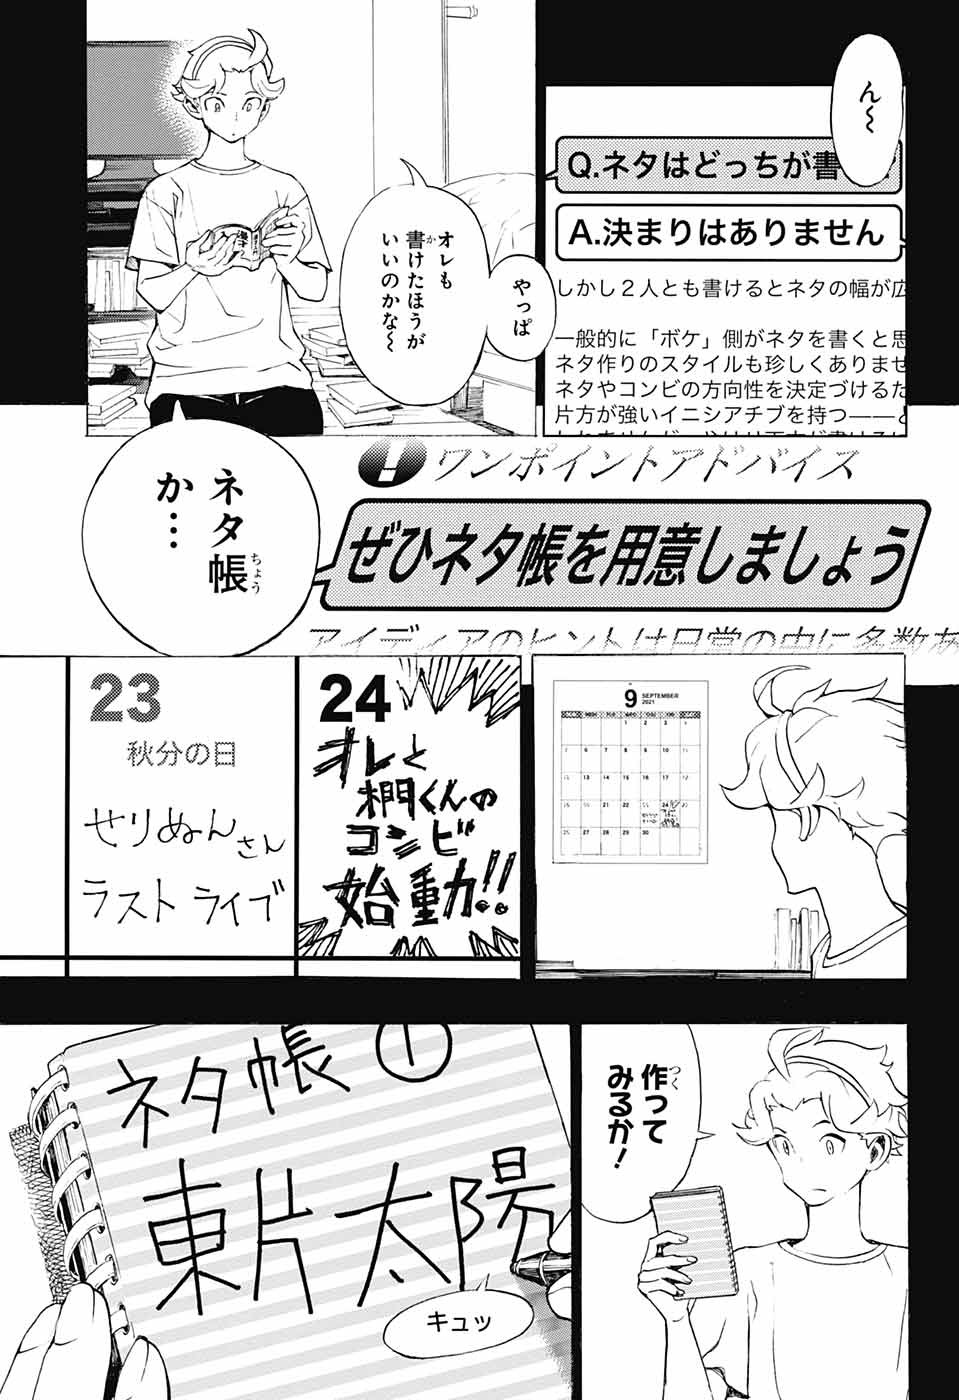 ん〜
Q.ネタはどっちが書
A.決まりはありません
しかし２人とも書けるとネタの幅が広
一般的に「ボケ」側がネタを書くと思
ネタ作りのスタイルも珍しくありませ
ネタやコンビの方向性を決定づけるた
片方が強いイニシアチブを持つ――と
やっぱ
オレも
書けたほうが
いいのかな〜
!
ワンポイントアドバイス
ぜひネタ帳を用意しましょう
アイディアのヒントは日常の中に多数あ
ネタ帳
か…
9 SEPTEMBER
2021
23
秋分の日
せりぬんさん
ラストライブ
24
オレと
椚くんの
コンビ
始動!!
作って
みるか!
ネタ帳 ①
東片太陽
キュッ